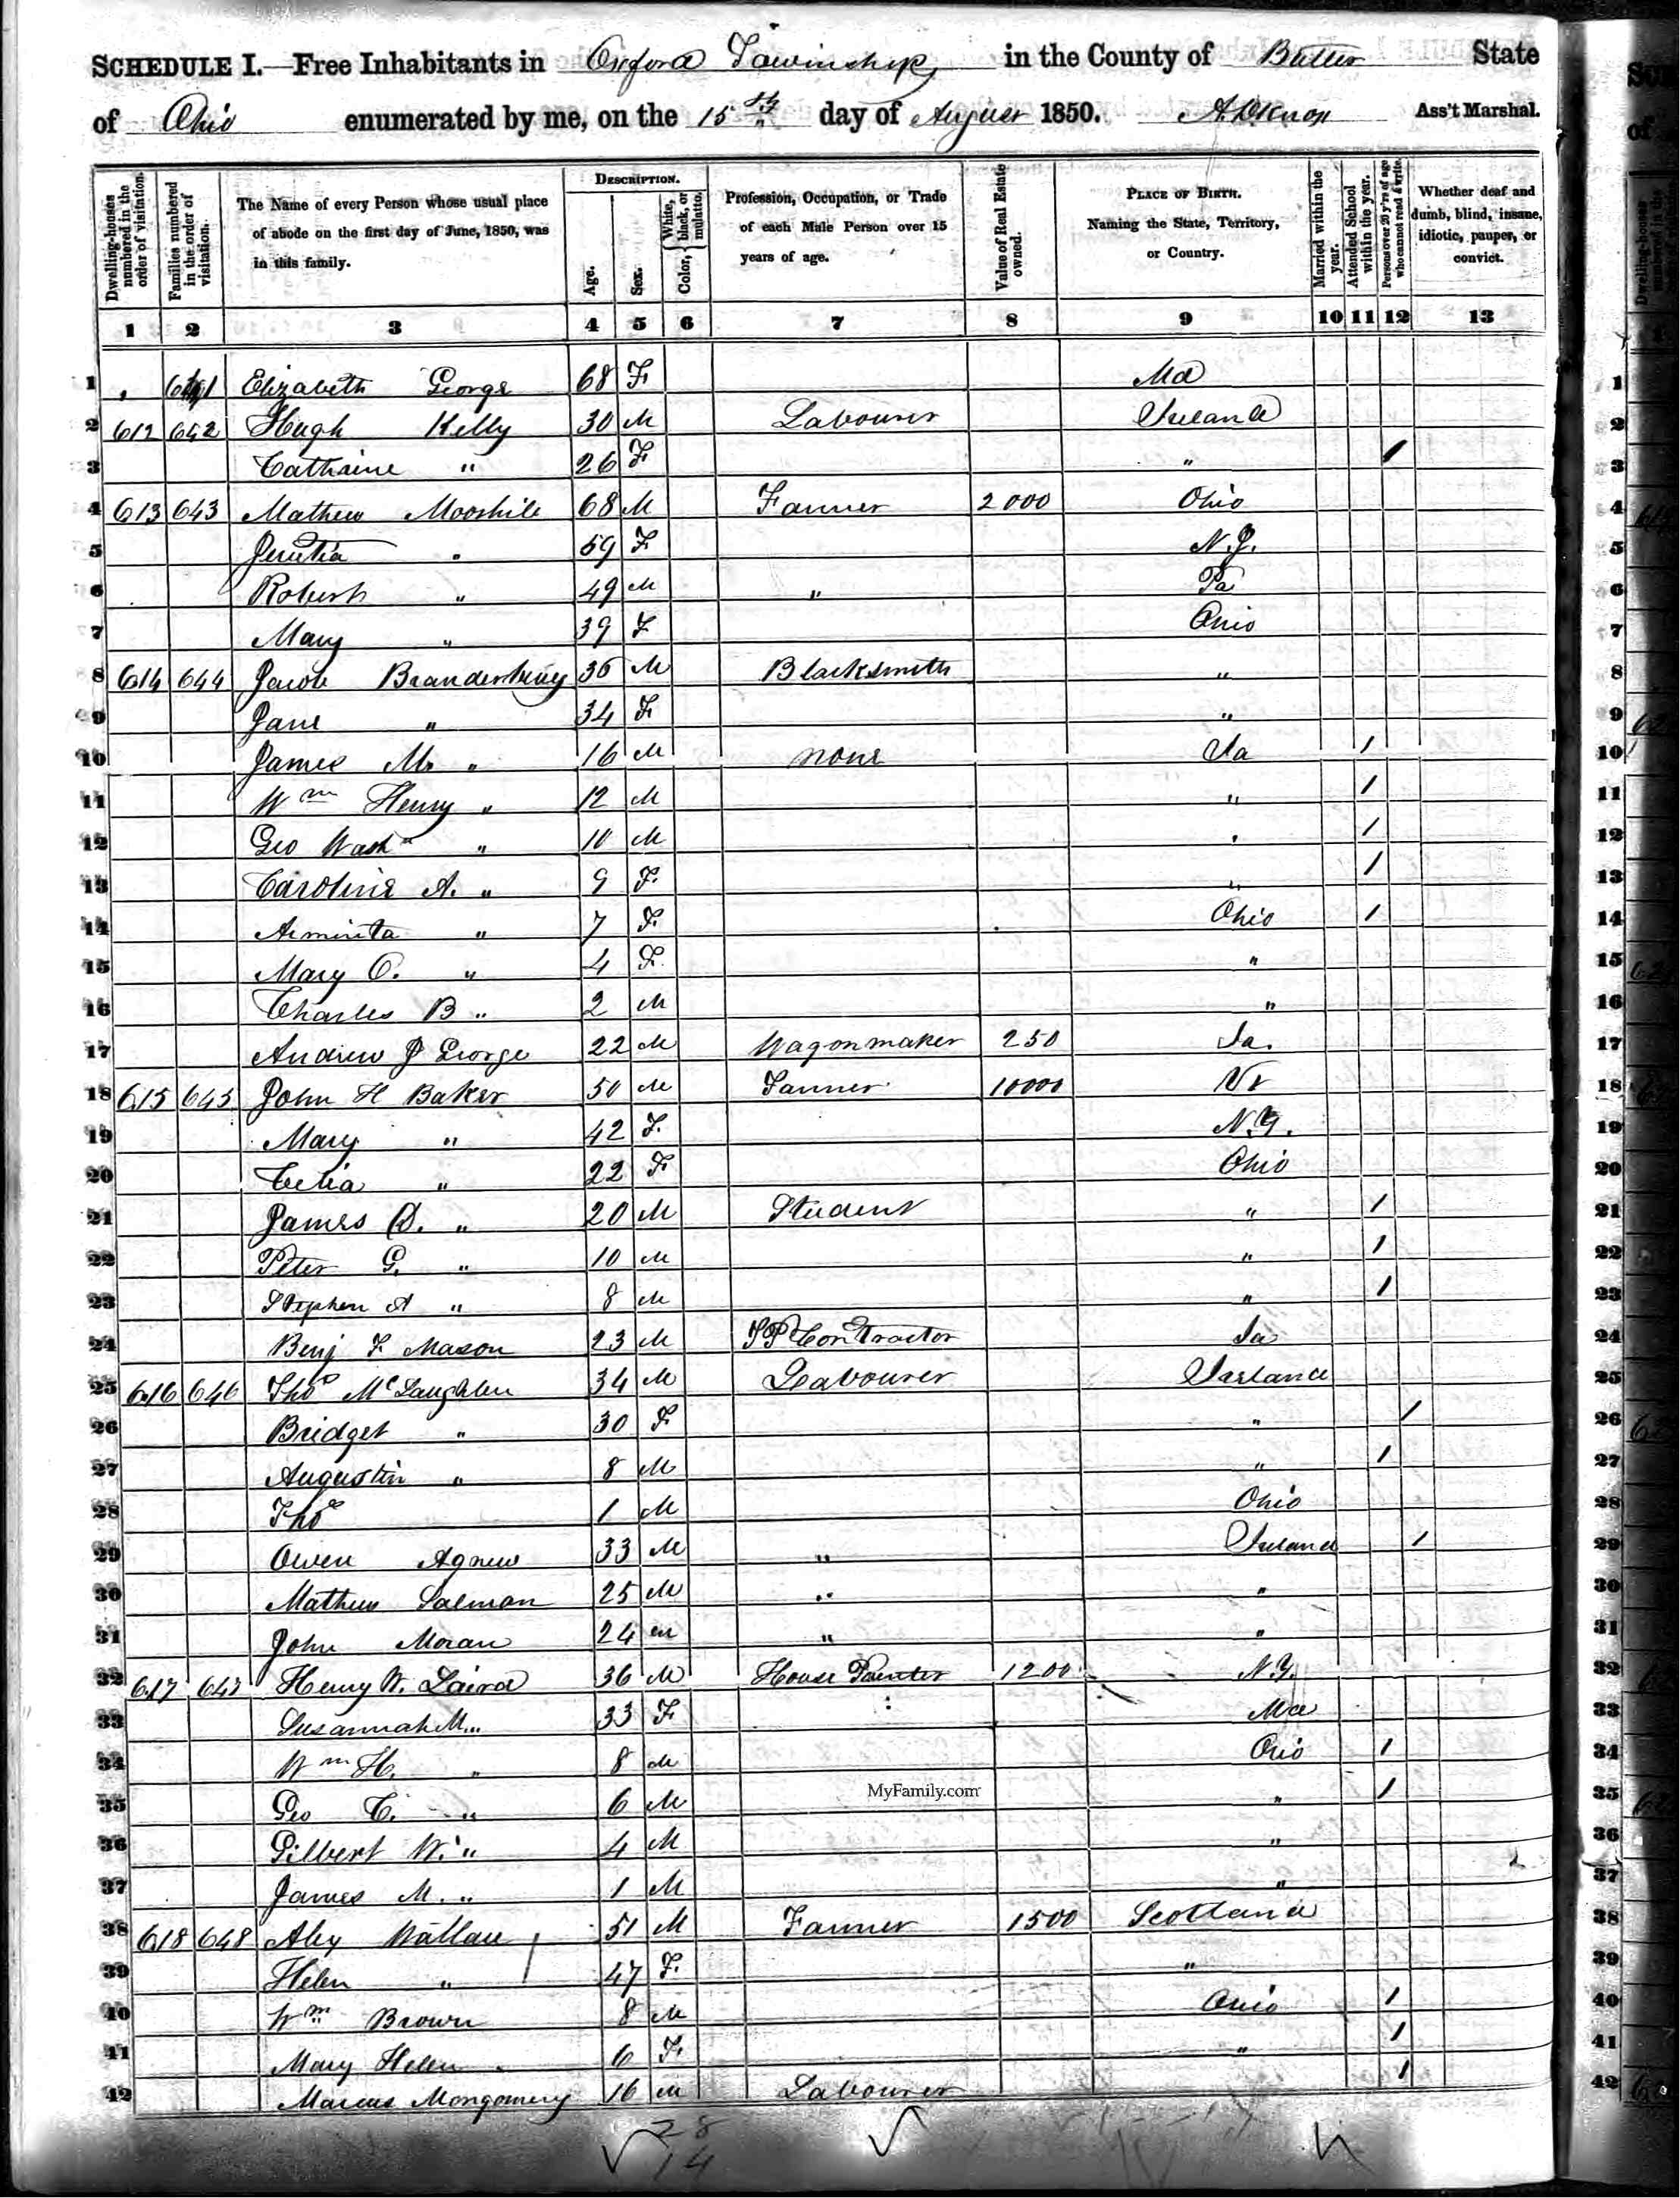 SCHEDULE I.—Free Inhabitants in Oxford Township, in the County of Butler State
of Ohio enumerated by me, on the 15th day of August 1850. Ass't Marshal.
Dwelling-houses numbered in the order of visitation.
Families numbered in the order of visitation.
The Name of every Person whose usual place of abode on the first day of June, 1850, was in this family.
DESCRIPTION.
Age.
Sex.
Color, { White, black, or mulatto.
Profession, Occupation, or Trade of each Male Person over 15 years of age.
Value of Real Estate owned.
PLACE OF BIRTH. Naming the State, Territory, or Country.
Married within the year.
Attended School within the year.
Persons over 20 y'rs of age who cannot read & write.
Whether deaf and dumb, blind, insane, idiotic, pauper, or convict.
1 2 3 4 5 6 7 8 9 10 11 12 13
1 Elizabeth George 68 F Md 1
2 612 642 Hugh Kelly 30 M Labourer Ireland 2
3 Cathrine " 26 F " / 3
4 613 643 Mathew 68 M Farmer 2000 Ohio 4
5 " 59 F N.J. 5
6 Robert " 49 M " Pa 6
7 Mary " 39 F Ohio 7
8 614 644 Jacob Brandenburg 36 M Blacksmith " 8
9 Jane " 34 F " 9
10 James M. " 16 M none Ia / 10
11 Wm Henry " 12 M " / 11
12 Geo Wash " 10 M " / 12
13 Caroline A. " 9 F. " / 13
14 Arminta " 7 F. Ohio / 14
15 Mary C. " 4 F. " 15
16 Charles B " 2 M " 16
17 Andrew J George 22 M Wagonmaker 250 Ia. 17
18 615 645 John H Baker 50 M Farmer 10000 Vt 18
19 Mary " 42 F. N.Y. 19
20 Celia " 22 F Ohio 20
21 James D. " 20 M Student " / 21
22 Peter G. " 10 M " / 22
23 Stephen A " 8 M " / 23
24 Benj F Mason 23 M Contractor Ia 24
25 616 646 Tho McLaughlin 34 M Labourer Ireland 25
26 Bridget " 30 F " / 26
27 Augustin " 8 M " / 27
28 Tho 1 M Ohio 28
29 Owen Agnew 33 M " Ireland / 29
30 Mathew Salmon 25 M " " 30
31 John Moran 24 M " " 31
32 617 647 Henry W. Laird 36 M House Painter 1200 N.Y. 32
33 Susannah M. " 33 F Md 33
34 Wm H. " 8 M Ohio / 34
35 Geo C. " 6 M " / 35
MyFamily.com
36 Gilbert W. " 4 M " 36
37 James M. " 1 M " 37
38 618 648 Alex Wallace 51 M Farmer 1500 Scotland 38
39 Helen " 47 F. " 39
40 Wm Brown 8 M Ohio / 40
41 Mary Helen " 6 F. " / 41
42 Marcus Montgomery 16 M Labourer / 42
28
14